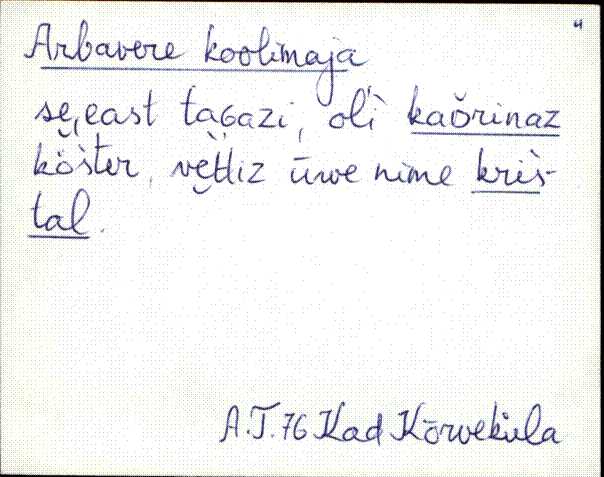 4
Arbavere koolimaja
se̬, east taGazi, olì̬ kaŏrinaz
kö̬šter, ve̬t̀t̀liz ūwe nime kris̀-
tal.
A.T. 76 Kad Kõrveküla